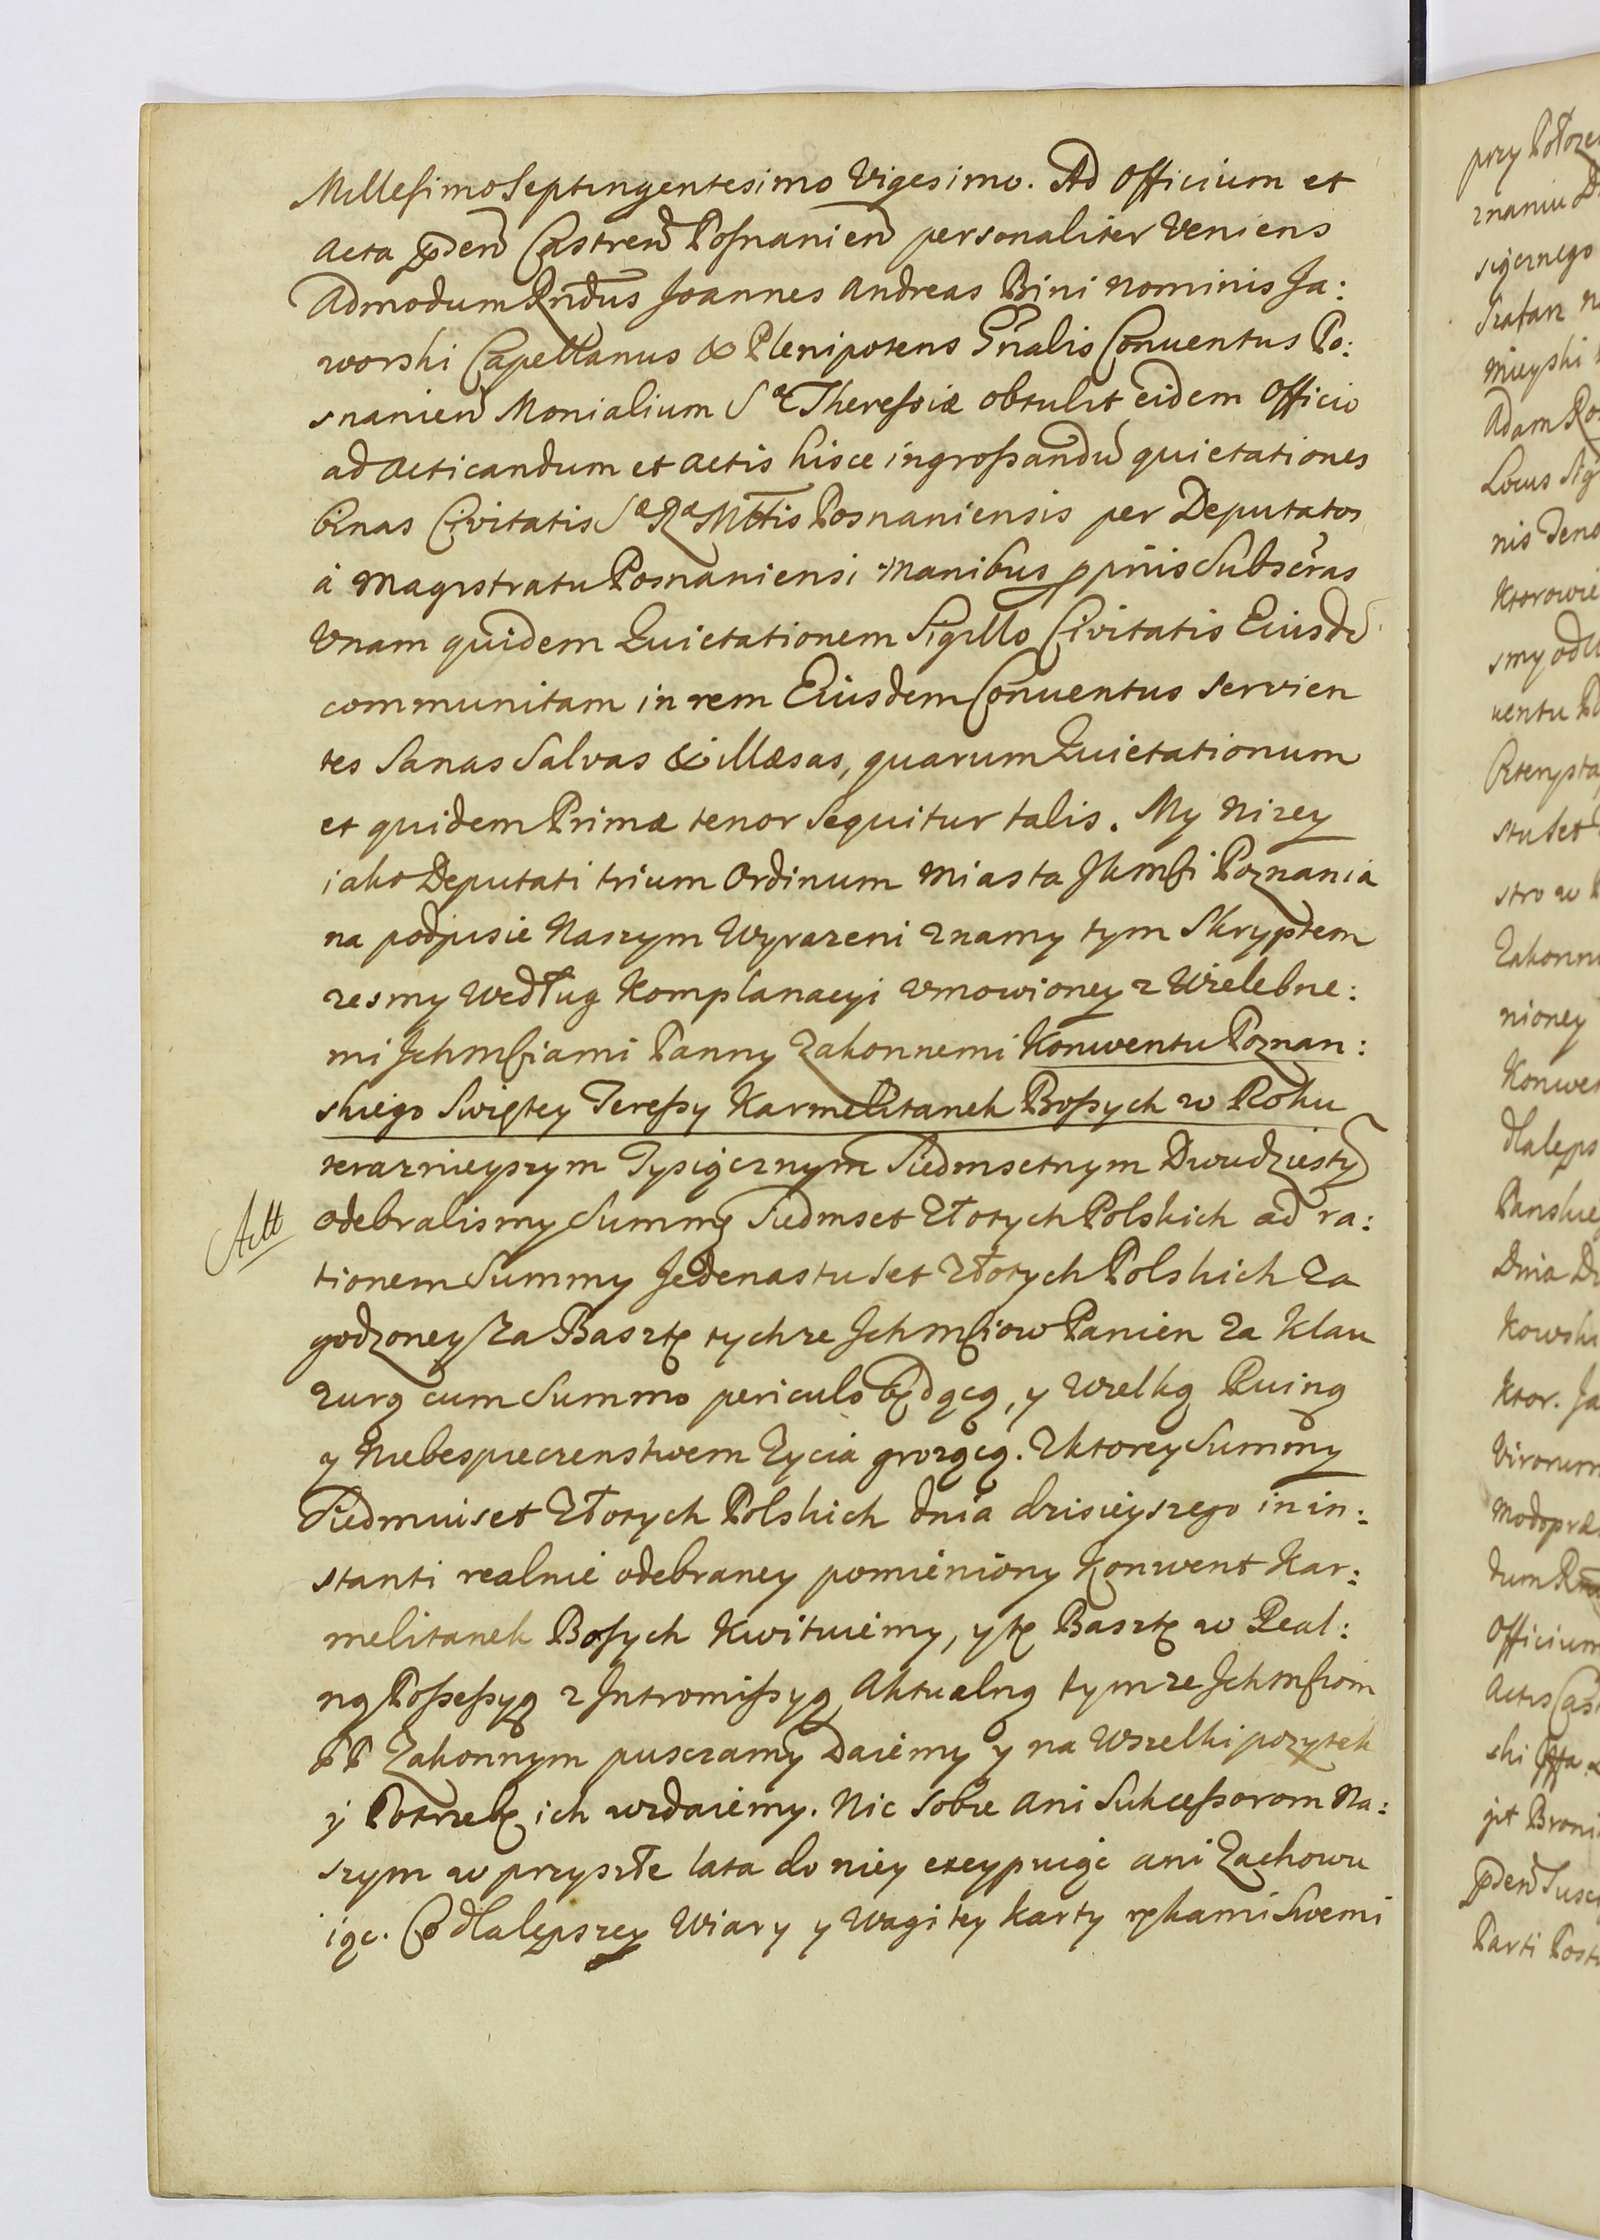 Millesimo Septingentesimo Vigesimo. Ad Officium et
Acta p̃sen̄ Castren̄ Posnanien̄ personaliter Veniens
Admodum Rndus Joannes Andreas Bini Nominis Ja:
worski Capellanus & Plenipotens Gnalis Conuentus Po:
snanien̄ Monialium Sæ Theressiæ obtulit eidem Officio
ad Acticandum et Actis hisce ingrossandū quietationes
binas Civitatis Sæ Ræ Mttis Posnaniensis per Deputatos
à Magistratu Posnaniensi Manibus ppriis Subscras
Vnam quidem Quietationem Sigillo Civitatis Eiusdē
communitam in rem Eiusdem Conuentus Servien
tes Sanas Salvas & illæsas, quarum Quietationum
et quidem Primæ tenor Sequitur talis. My Nizey
iako Deputati trium Ordinum Miasta Jkmsci Poznania
na podpisie Naszym Wyrazeni znamy tym Skryptem
zesmy Według Komplanacyi vmowioney z Wielebne:
mi Jchmsciami Panny Zakonnemi Konwentu Poznan:
skiego Swiętey Teressy Karmelitanek Bossych w Roku
teraznieyszym Tysiącznym Siedmsetnym Dwudziesty
Aett
odebralismy Summę Siedmset Złotych Polskich ad ra:
tionem Summy Jedenastu Set Złotych Polskich Za
godzoney Za Basztę tychze Jchmsciow Panien za Klau
zurą cum Summo periculo będącą, y Wielką Ruiną
y Niebespieczenstwem Zycia grozącą. Z ktorey Summy
Siedmiuset Złotych Polskich dnia dzisieyszego in in:
stanti realnie odebraney pomieniony Konwent Kar:
melitanek Bosych Kwituiemy, y tę Basztę w Real:
ną Possessyą z Intromissyą Aktualną tymze Jchmsciom
PP Zakonnym puszczamy Daiemy y na Wszelki pozytek
y Potrzebę ich wzdaiemy. Nic Sobie ani Sukcessorom Na:
szym w przyszłe lata do niey excypuiąc ani Zachowu
iąc. Co dla lepszey Wiary y Wagi tey karty rękami Swemi